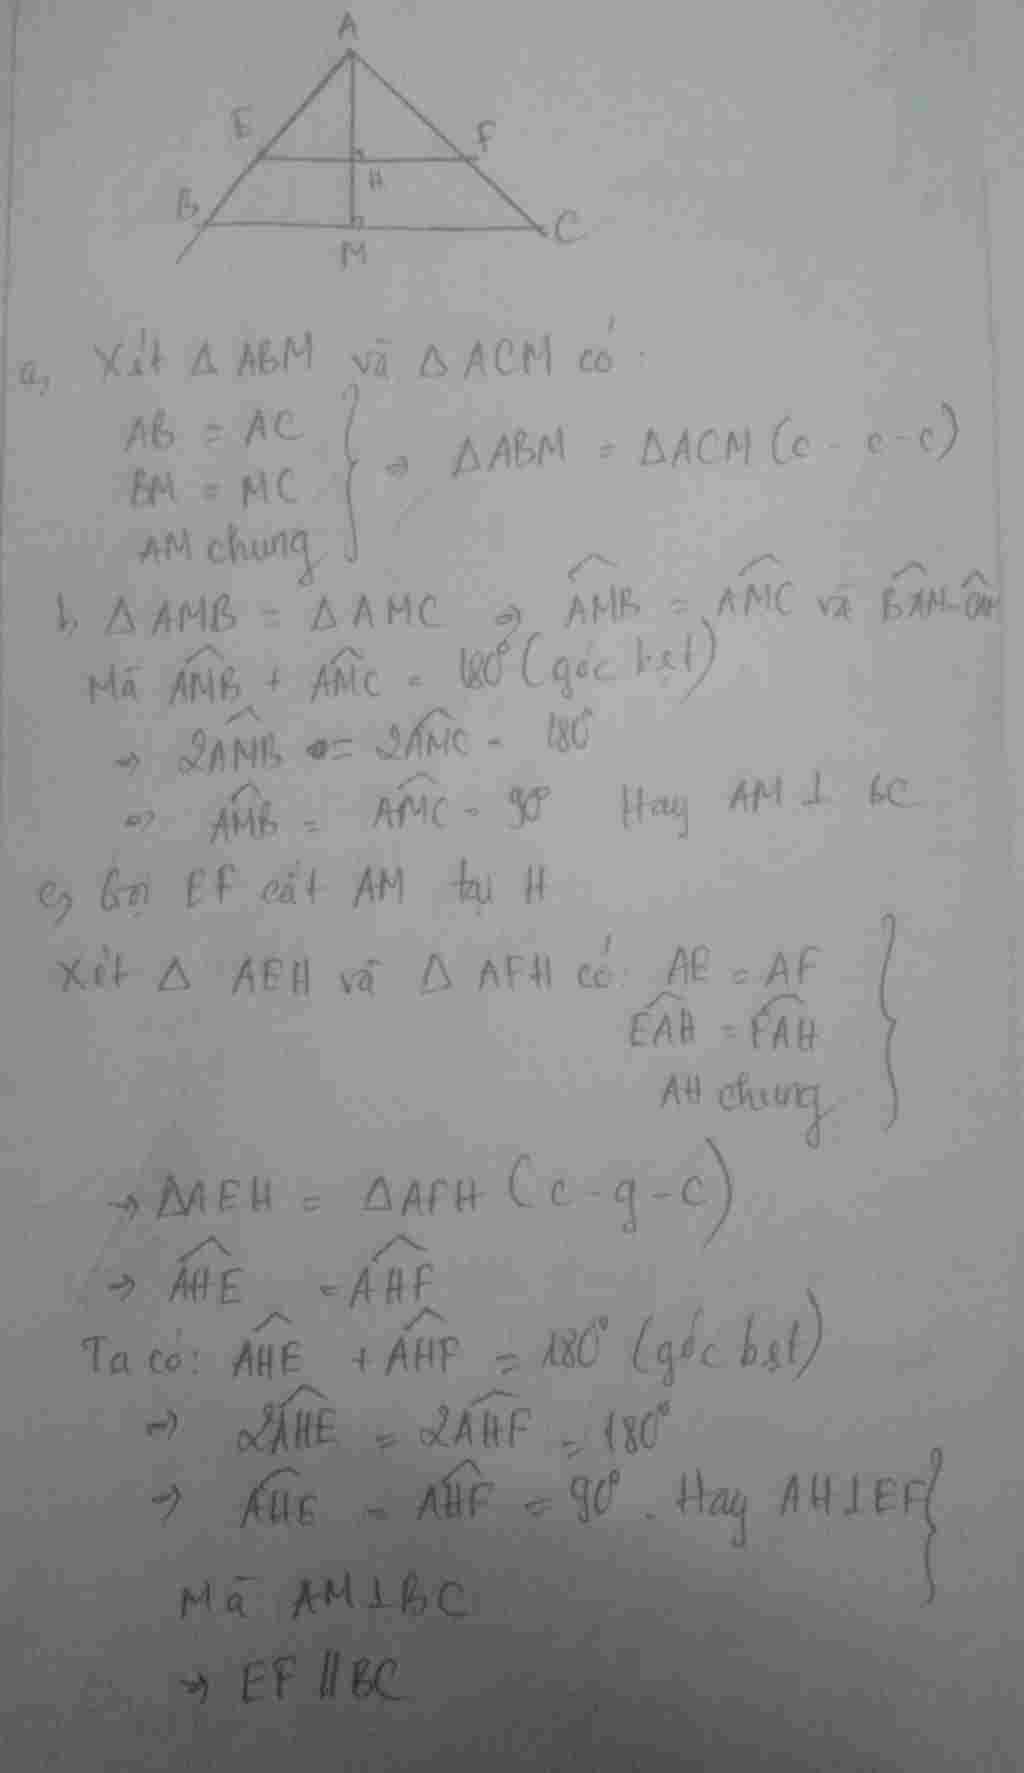 A
E
F
H
B
C
M
a, Xét Δ ABM và Δ ACM có:
AB = AC
BM = MC
AM chung
⇒ ΔABM = ΔACM (c - c - c)
b, Δ AMB = Δ AMC ⇒ \widehat{AMB} = \widehat{AMC} và \widehat{BAM} = \widehat{CAM}
Mà \widehat{AMB} + \widehat{AMC} = 180° (góc bẹt)
⇒ 2\widehat{AMB} = 2\widehat{AMC} = 180°
⇒ \widehat{AMB} = \widehat{AMC} = 90° Hay AM ⊥ BC
c, Gọi EF cắt AM tại H
Xét Δ AEH và Δ AFH có: AE = AF
\widehat{EAH} = \widehat{FAH}
AH chung
⇒ ΔAEH = ΔAFH (c - g - c)
⇒ \widehat{AHE} = \widehat{AHF}
Ta có: \widehat{AHE} + \widehat{AHF} = 180° (góc bẹt)
⇒ 2\widehat{AHE} = 2\widehat{AHF} = 180°
⇒ \widehat{AHE} = \widehat{AHF} = 90°. Hay AH ⊥ EF
Mà AM ⊥ BC
⇒ EF // BC